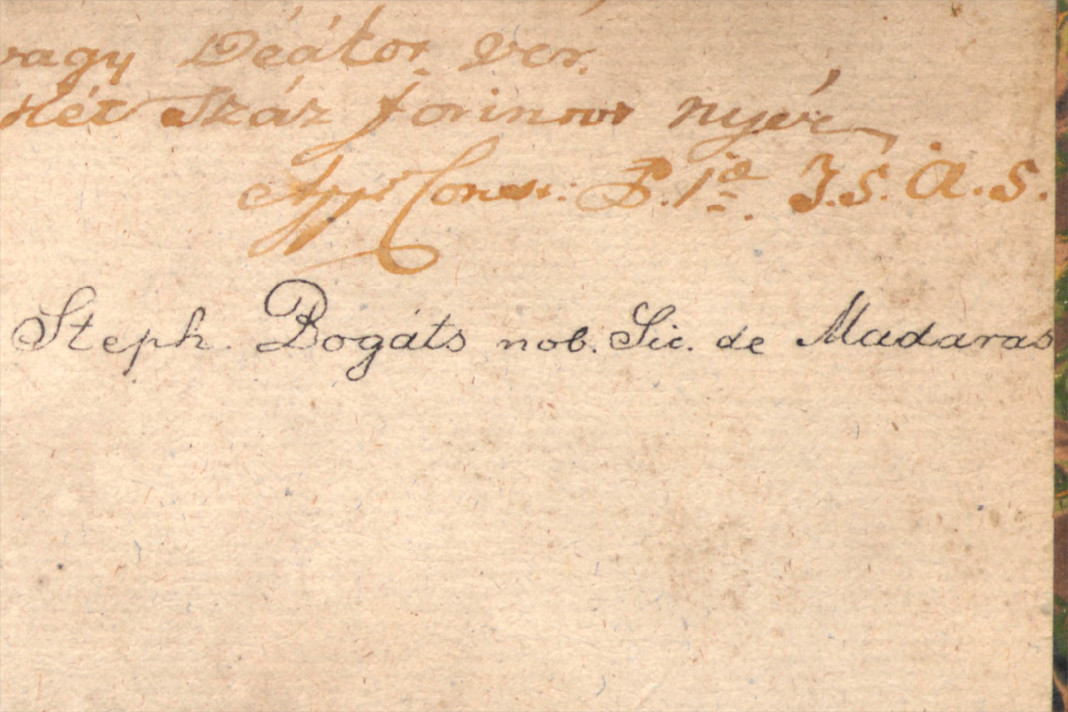 vagy Deákot ver.
Két Száz forintot nyér
App: Const: P. 1ª. T. 5. A. 5.
Steph. Bogáts nob. Sic. de Madaras